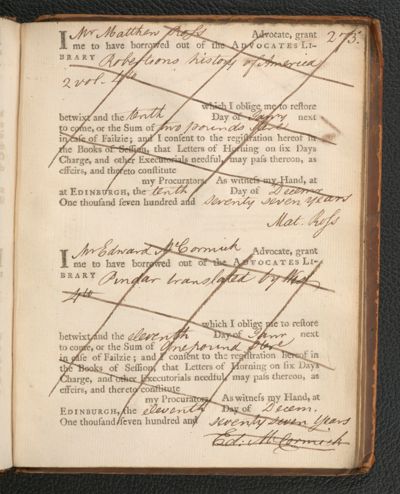 275.
I Mr Matthew Ross Advocate, grant
me to have borrowed out of the ADVOCATES LI-
BRARY Robertsons history of America
2 vol. 4to
which I oblige me to reſtore
betwixt and the tenth Day of Janry next
to come, or the Sum of two pounds
in caſe of Failzie; and I conſent to the regiſtration hereof in
the Books of Seſſion, that Letters of Horning on ſix Days
Charge, and other Executorials needful, may paſs thereon, as
effeirs, and thereto conſtitute
my Procurators. As witneſs my Hand, at
at EDINBURGH, the tenth Day of Decemr
One thouſand ſeven hundred and seventy seven years
Mat. Ross
I Mr Edward McCormick Advocate, grant
me to have borrowed out of the ADVOCATES LI-
BRARY Pindar translated by
4to
which I oblige me to reſtore
betwixt and the eleventh Day of Janr next
to come, or the Sum of One pound
in caſe of Failzie; and I conſent to the regiſtration hereof in
the Books of Seſſion, that Letters of Horning on ſix Days
Charge, and other Executorials needful, may paſs thereon, as
effeirs, and thereto conſtitute
my Procurators. As witneſs my Hand, at
EDINBURGH, the eleventh Day of Decem.
One thouſand ſeven hundred and seventy seven years
Ed. McCormick